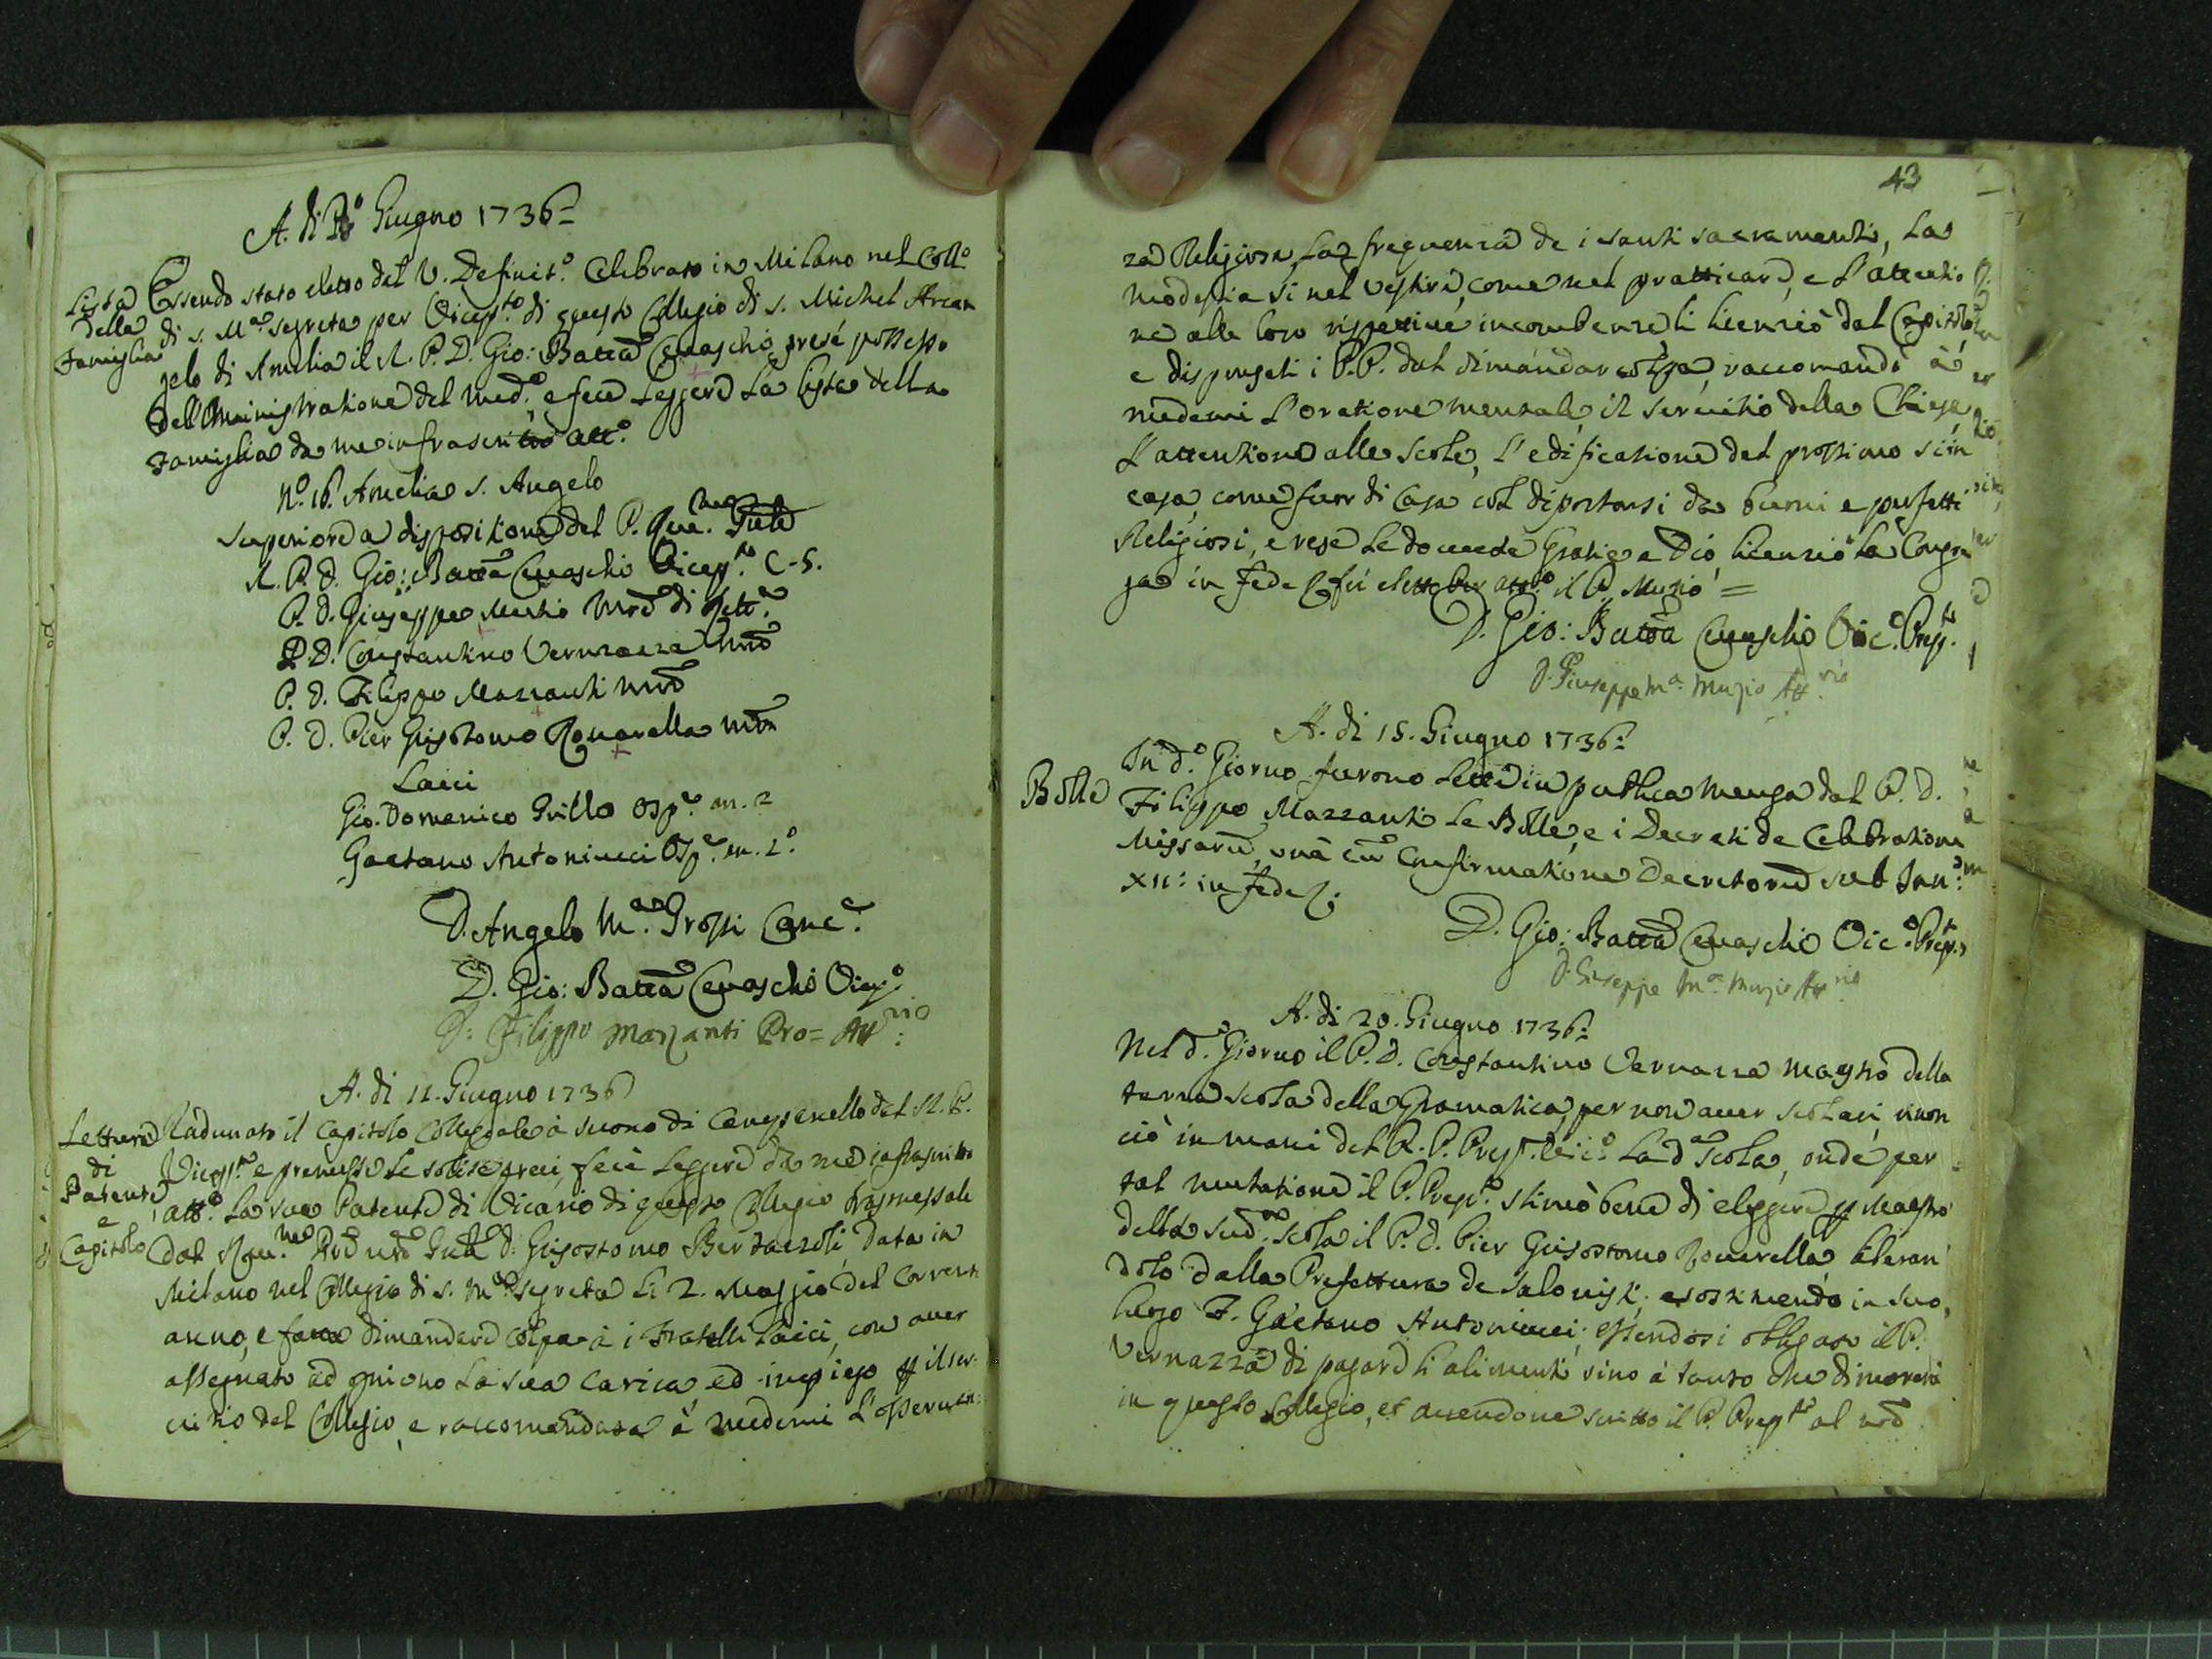 A. di Po Giugno 1736
Lista
della
Famiglia
Essendo stato eletto dal V. Definit.o Celebrato in Milano nel Coll.o
di S. M.a Segreta per Vicep.to di questo Collegio di S. Michel Arcan
gelo di Amelia il R. P. D. Gio: Batta Cevaschi, prese possesso
dell'Aministratione del med.o e fece leggere la lista della
Famiglia da me infrascritto att.o
No. 16. Amelia S. Angelo
Superiore a disposizione del P. Gnle
R. P. D. Gio: Batta Cevaschi Vicep.to C-S.
P. D. Giuseppe Mutio Mro di Rett.a
P. D. Constantino Vernazza Mro
P. D. Filippo Mazzanti Mro
P. D. Pier Grisostomo Rovarella Mro
Laici
Gio. Domenico Grillo Osp.e an. 2
Gaetano Antoninci Osp.e an. 2.o
D. Angelo M.a Grossi Canc.e
D. Gio: Batta Cevaschi Vicep.o
D: Filippo Mazzanti Pro= Att.rio
A. di 11. Giugno 1736
Lettura
di
Patente
e
Capitolo
Radunato il Capitolo Collegiale à suono di Campanello dal R. P.
Vicep.to e premesse le solite preci, fece leggere da me infrascritto
att.o la sua Patente di Vicario di questo Collegio trasmessali
dal Rev.mo Pre nro Gnle D. Grisostomo Bertazzoli, data in
Milano nel Collegio di S. M.a Segreta li 2. Maggio del corrente
anno, e fatta dimandare colpa à i Fratelli laici, con aver
assegnato ad ogniuno la sua carica ed impiego p il ser:
vitio del Collegio, e raccomandata à medemi l'osservan:
43
za Religiosa, la frequenza de i santi sacramenti, la
modestia si nel vestire, come nel pratticare, e l'attentio
ne alle loro rispettive incombenze, li licenziò dal Capitolo
e dispensati i P.P. dal dimandar colpa, raccomandò à
medemi l'oratione mentale, il servitio della Chiesa,
l'attentione alle scole, l'edificatione del prossimo si in
casa, come fuor di casa col diportarsi da buoni e perfetti
Religiosi, e rese le dovute Gratie a Dio, licenziò la Congre
ga in fede & fu eletto per att.o il P. Muzio =
D. Gio: Batta Cevaschi Vic.o Prep.to
D. Giuseppe M.a Muzio Att.rio
A. di 15. Giugno 1736:
Bolle
In d.o Giorno furono lette in publica mensa dal P. D.
Filippo Mazzanti le Bolle, e i Decreti de Celebratione
Missarũ, unà cũ Confirmatione Decretorũ sub Inn:
XII: in fede &
D. Gio: Batta Cevaschi Vic.o Prep.to
D. Giuseppe M.a Muzio Att.rio
A. di 20. Giugno 1736:
Nel d.o Giorno il P. D. Constantino Vernazza Maestro della
terza scola della Gramatica, per non aver scolari, rinon
ciò in mani del R. P. Prep.to Vic.o la d.a scola, onde per
tal mutatione il P. Prep.to stimò bene di eleggere p Maestro
della sud.a scola il P. D. Pier Grisostomo Rovarella liberan
dolo dalla Prefettura de Salonisti, e sostituendo in suo
luogo F. Gaetano Antoninci; essendosi obligato il P.
Vernazza di pagare li alimenti sino à tanto che dimorerà
in questo Collegio, et avendone scritto il P. Prep.to al nro